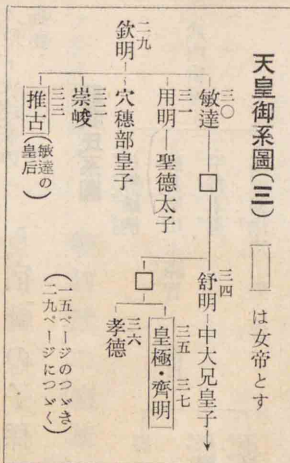 天皇御系圖（三）
は女帝とす
二九
欽明
三〇
敏達
三一
用明
聖德太子
穴穗部皇子
三二
崇峻
三三
推古
（敏達の皇后）
三四
舒明
中大兄皇子
三五 三七
皇極・齊明
三六
孝德
（一五ページのつゞき
二九ページにつゞく）